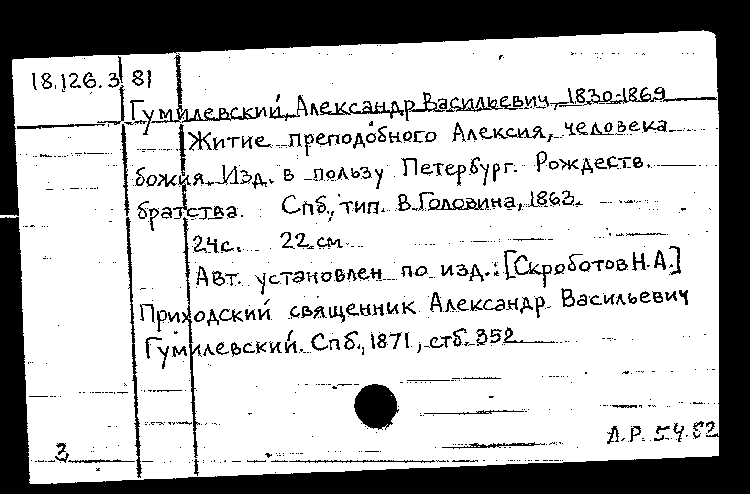 18.126.3 81
Гумилевский, Александр Васильевич, 1830-1869
Житие преподобного Алексия, человека
божия. Изд. в пользу Петербург. Рождеств.
братства. Спб., тип. В. Головина, 1863.
24с. 22 см
Авт. установлен по изд.: [Скроботов Н.А.]
Приходский священник Александр Васильевич
Гумилевский. Спб., 1871, стб. 352.
3
Л.Р. 5.4.82